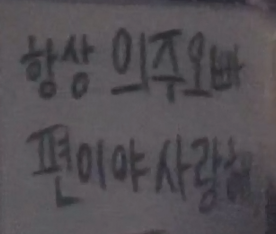 항상 의주오빠
편이야 사랑해